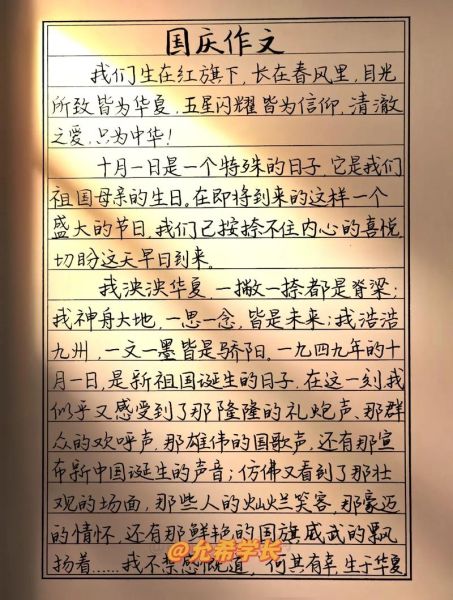 国庆作文
我们生在红旗下，长在春风里，目光
所致皆为华夏，五星闪耀皆为信仰，清澈
之爱，只为中华！
十月一日是一个特殊的日子，它是我们
祖国母亲的生日。在即将到来的这样一个
盛大的节日，我们已按捺不住内心的喜悦，
切盼这天早日到来。
我泱泱华夏，一撇一捺都是脊梁；
我神舟大地，一思一念，皆是未来；我浩浩
九州，一文一墨皆是骄阳。一九四九年的十
月一日，是新祖国诞生的日子，在这一刻我
们乎又感受到了那隆隆的礼炮声、那群
众的欢呼声，那雄伟的国歌声，还有那宣
布新中国诞生的声音；仿佛又看到了那壮
观的场面，那些人的灿烂笑容，那豪迈
的情怀，还有那鲜艳的国旗威武的飘
扬着……我不禁感慨道，何其有幸，生于华夏
@允希学长